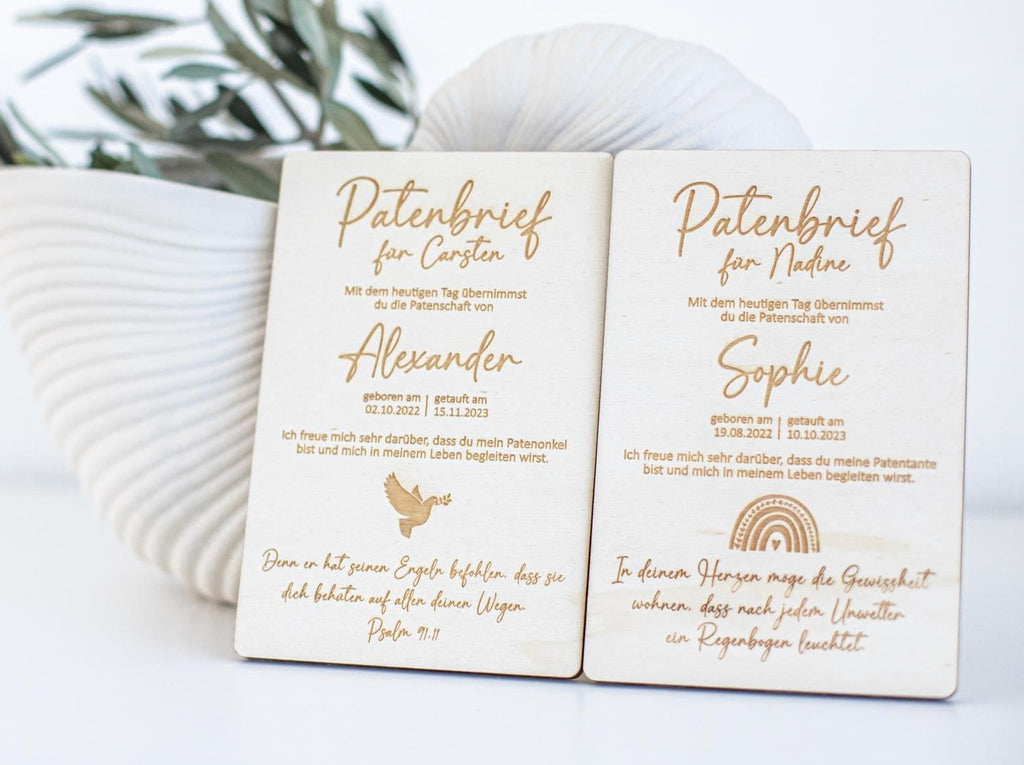 Patenbrief
für Carsten
Mit dem heutigen Tag übernimmst
du die Patenschaft von
Alexander
geboren am | getauft am
02.10.2022 | 15.11.2023
Ich freue mich sehr darüber, dass du mein Patenonkel
bist und mich in meinem Leben begleiten wirst.
Denn er hat seinen Engeln befohlen, dass sie
dich behüten auf allen deinen Wegen.
Psalm 91,11
Patenbrief
für Nadine
Mit dem heutigen Tag übernimmst
du die Patenschaft von
Sophie
geboren am | getauft am
19.08.2022 | 10.10.2023
Ich freue mich sehr darüber, dass du meine Patentante
bist und mich in meinem Leben begleiten wirst.
In deinem Herzen möge die Gewissheit
wohnen, dass nach jedem Unwetter
ein Regenbogen leuchtet.